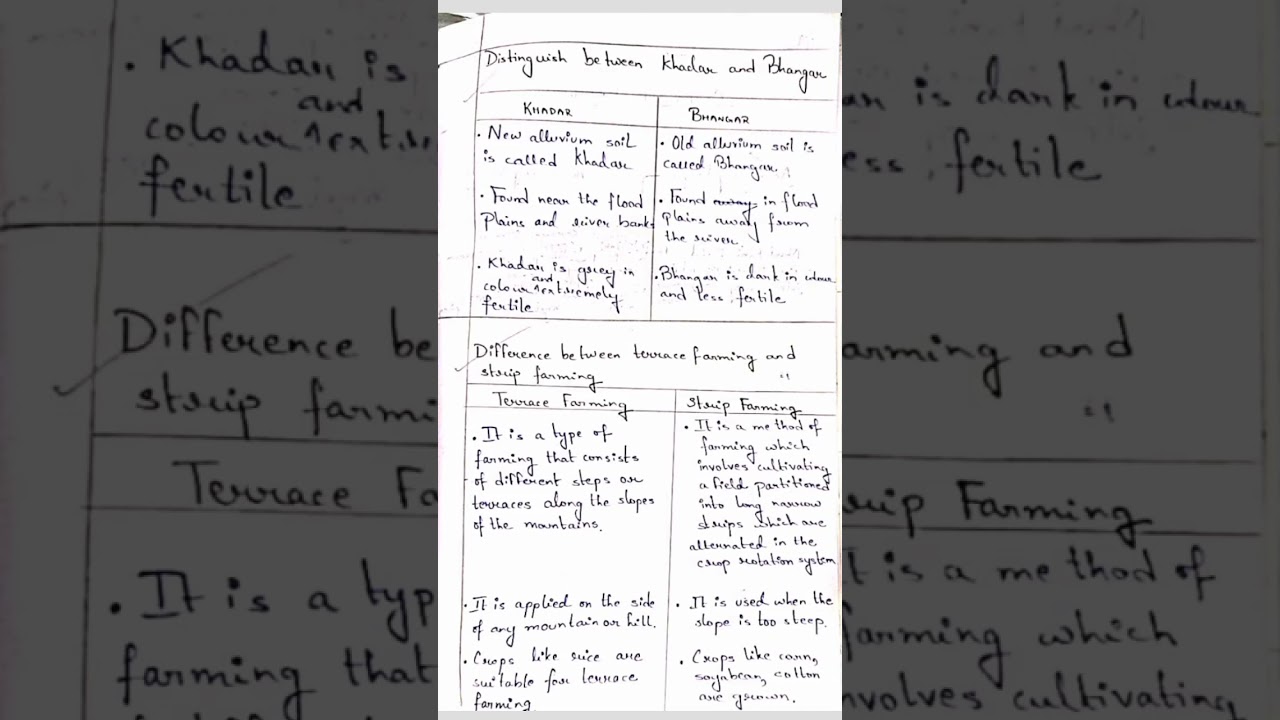 Distinguish between Khadar and Bhangar
KHADAR
• New alluvium soil
is called Khadar
• Found near the flood
Plains and river banks
• Khadar is grey in
and
colour ^ extremely
fertile
BHANGAR
• Old alluvium soil is
called Bhangar.
• Found away in flood
plains away from
the river.
• Bhangar is dark in colour
and less fertile
Difference between terrace farming and
strip farming
Terrace Farming
• It is a type of
farming that consists
of different steps or
terraces along the slopes
of the mountains.
• It is applied on the side
of any mountain or hill.
• Crops like rice are
suitable for terrace
farming.
Strip Farming
• It is a method of
farming which
involves cultivating
a field partitioned
into long narrow
strips which are
alternated in the
crop rotation system
• It is used when the
slope is too steep.
• Crops like corn,
soyabean, cotton
are grown.